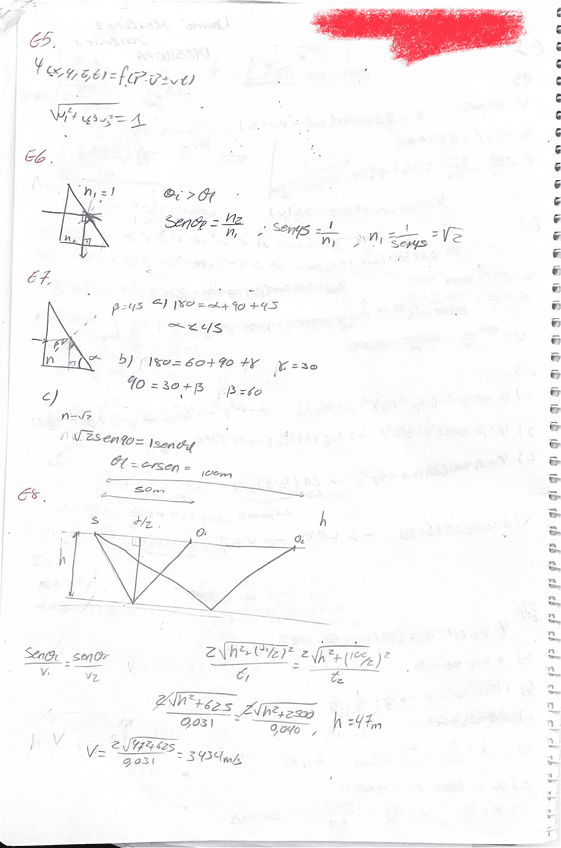 E5.
Ψ(x,y,z,t)=f(r⃗·v⃗±vt)
√v₁²+v₂²+v₃²=1
E6.
n₁=1 θi>θl
senθl=n₂/n₁ ; sen45=1/n₁ , n₁=1/sen45=√2
E7.
β=45 a) 180=α+90+45
α≤45
n β α b) 180=60+90+γ γ=30
90=30+β β=60
c)
n=√2
√2sen90=1senθl
θl=arcsen=
100m
50m
E8.
h
S d/2 O₁ O₂
h
senθi/v₁=senθr/v₂ 2√h²+(d₁/2)²/t₁=2√h²+(100/2)²/t₂
2√h²+625/0,031=2√h²+2500/0,040, h=47m
V=2√47²+625/0,031=3434m/s